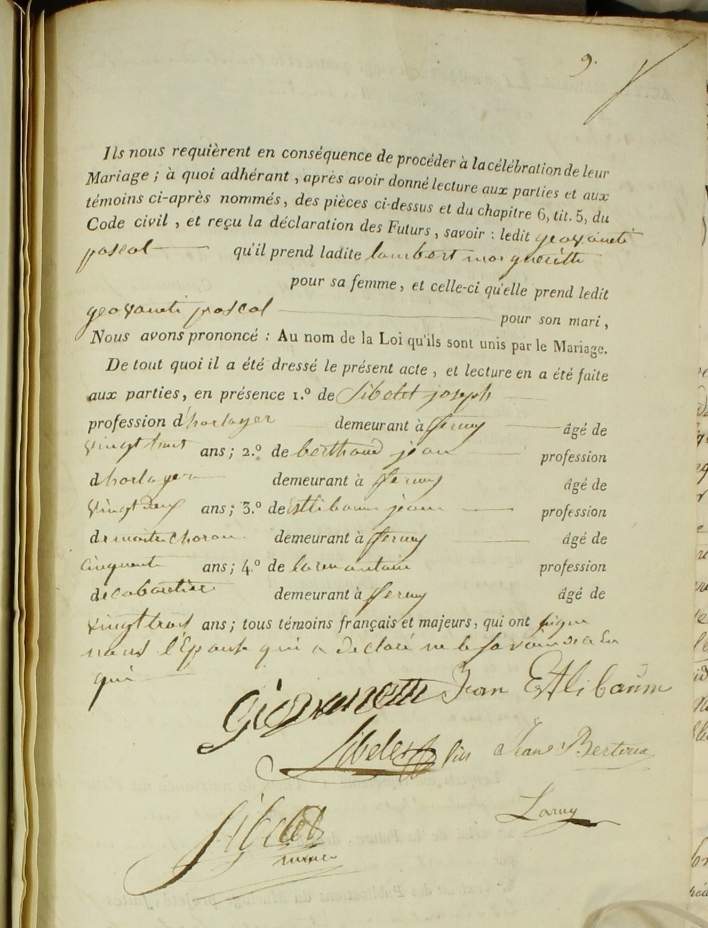 9.
Ils nous requièrent en conséquence de procéder à la célébration de leur
Mariage ; à quoi adhérant, après avoir donné lecture aux parties et aux
témoins ci-après nommés, des pièces ci-dessus et du chapitre 6, tit. 5, du
Code civil, et reçu la déclaration des Futurs, savoir : ledit geovaneti
pascal qu'il prend ladite lambert margueritte
pour sa femme, et celle-ci qu'elle prend ledit
geovaneti pascal pour son mari,
Nous avons prononcé : Au nom de la Loi qu'ils sont unis par le Mariage.
De tout quoi il a été dressé le présent acte, et lecture en a été faite
aux parties, en présence 1.º de Sibelet joseph
profession d'horloger demeurant à ferney âgé de
vingt trois ans ; 2.º de berthoud jean profession
d horloger demeurant à ferney âgé de
vingt deux ans ; 3.º de Etlibaum jean profession
de demeurant à ferney âgé de
cinquante ans ; 4.º de profession
de cabartier demeurant à ferney âgé de
vingt trois ans ; tous témoins français et majeurs, qui ont signé
nous l'Epouse qui a declaré ne le savoir de ce
qui
Giovanetti Jean Etlibaum
Sibelet fils Jean Bertoud
Larny
Sibelet
maire